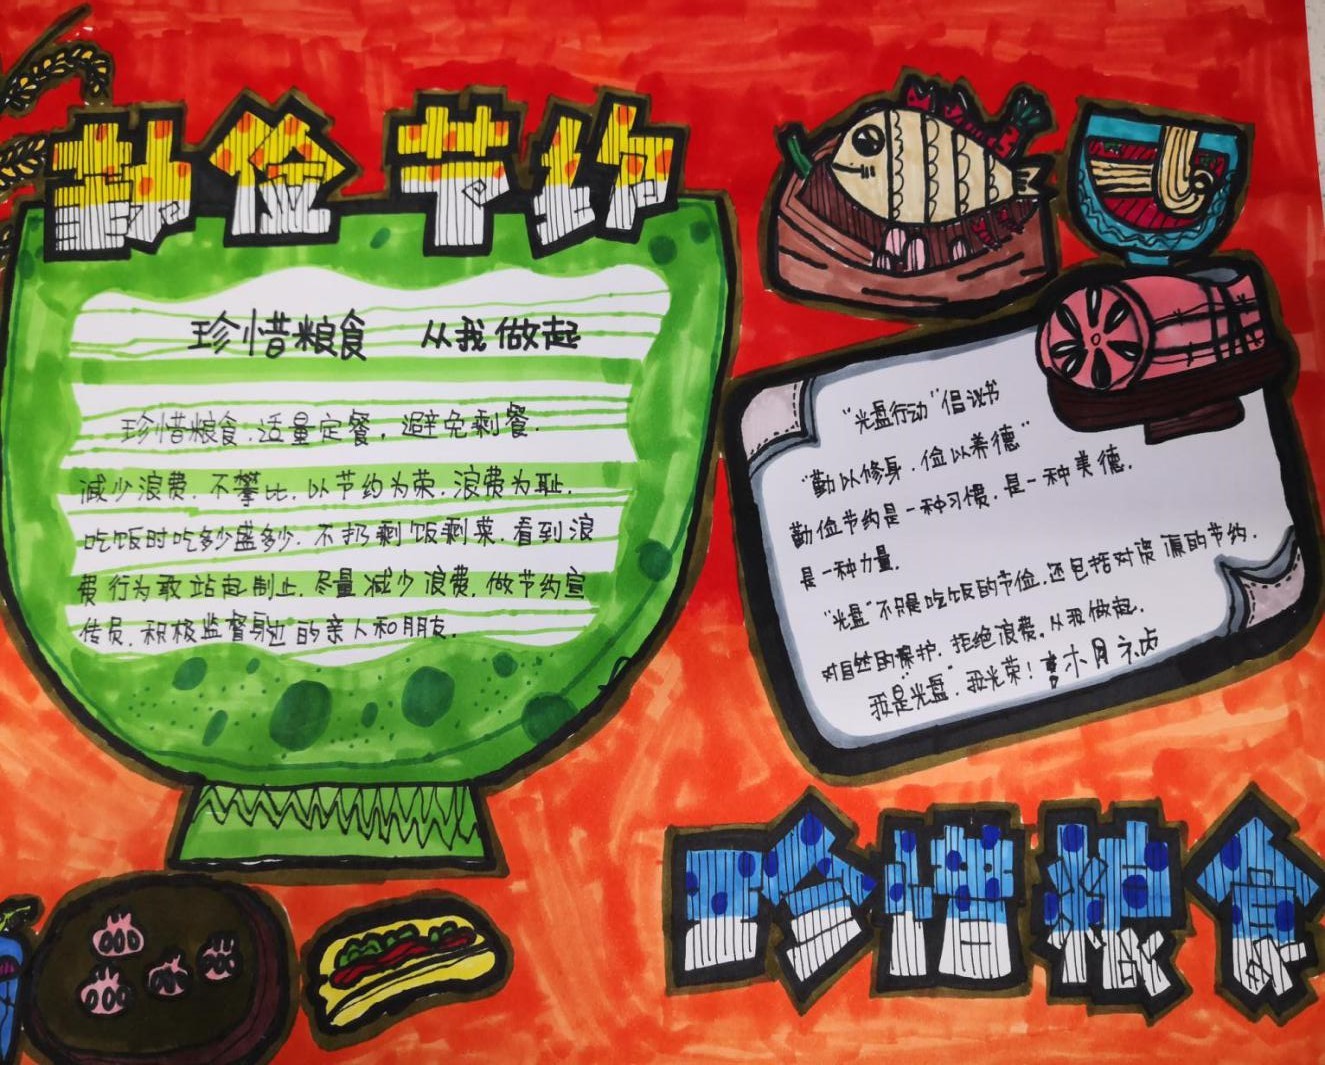 勤俭节约
珍惜粮食 从我做起
珍惜粮食.适量定餐,避免剩餐.
减少浪费.不攀比.以节约为荣.浪费为耻.
吃饭时吃多少盛多少.不扔剩饭剩菜.看到浪
费行为敢站起制止.尽量减少浪费.做节约宣
传员.积极监督身边的亲人和朋友.
"光盘行动"倡议书
"勤以修身.俭以养德"
勤俭节约是一种习惯.是一种美德.
是一种力量.
"光盘"不只是吃饭的节俭.还包括对资源的节约.
对自然的保护.拒绝浪费.从我做起.
我是"光盘".我光荣!
珍惜粮食